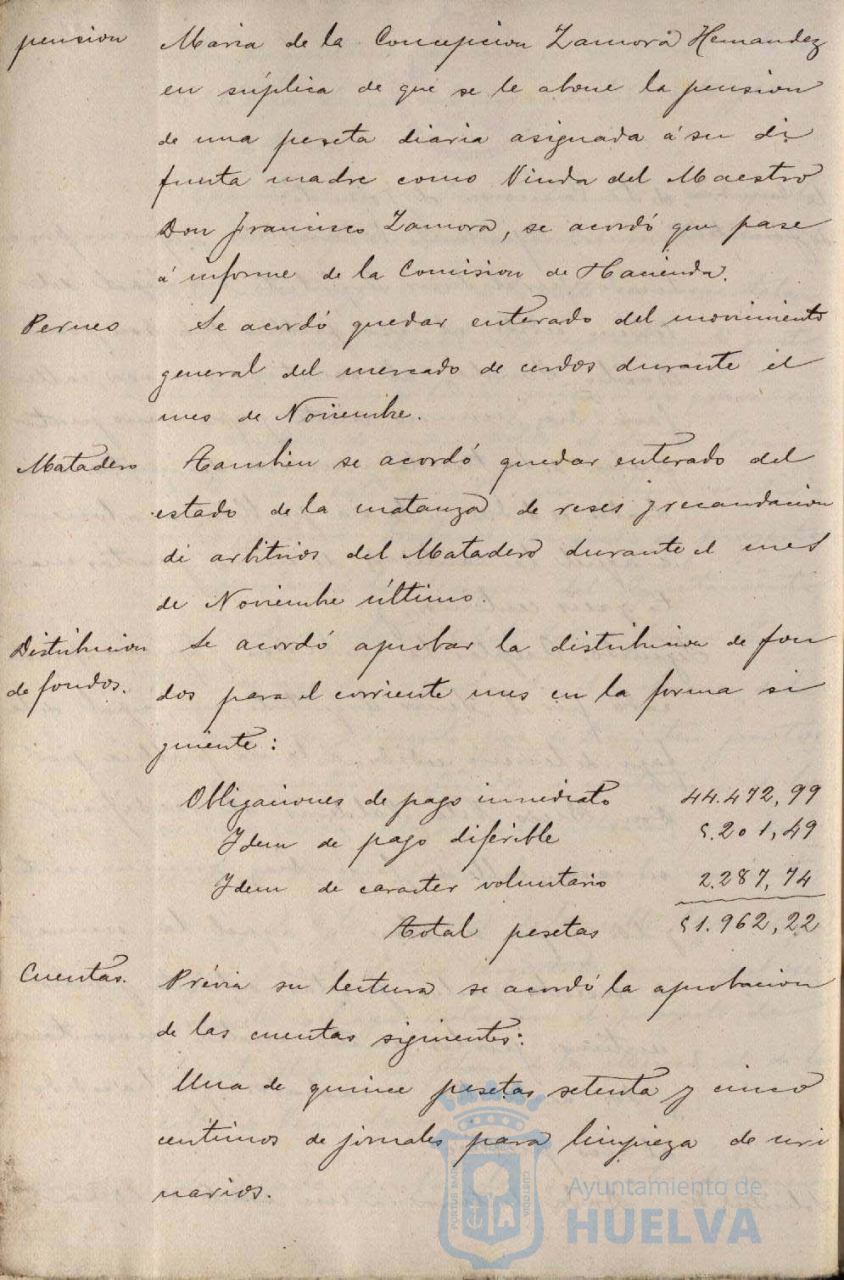 pension
Maria de la Concepcion Zamora Hernandez
en súplica de que se le abone la pension
de una peseta diaria asignada á su di
funta madre como Viuda del Maestro
Don Francisco Zamora, se acordó que pase
á informe de la Comision de Hacienda.
Perneo
Se acordó quedar enterado del movimiento
general del mercado de cerdos durante el
mes de Noviembre.
Matadero
Tambien se acordó quedar enterado del
estado de la matanza de reses y recaudacion
de arbitrios del Matadero durante el mes
de Noviembre último.
Distribucion
de fondos.
Se acordó aprobar la distribucion de fon
dos para el corriente mes en la forma si
guiente:
Obligaciones de pago inmediato 44.472,99
Idem de pago diferible 5.201,49
Idem de caracter voluntario 2.287,74
Total pesetas 51.962,22
Cuentas.
Prévia su lectura se acordó la aprobacion
de las cuentas siguientes:
Una de quince pesetas setenta y cinco
centimos de jornales para limpieza de uri
narios.
Ayuntamiento de
HUELVA